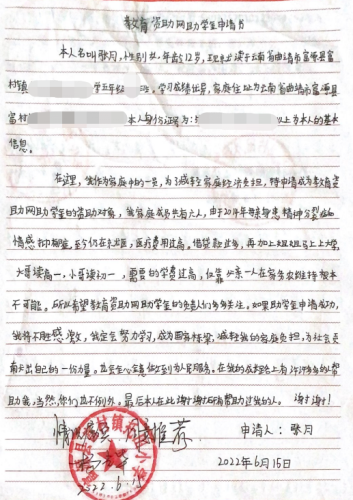 教育资助网助学生申请书
本人名叫歌月,性别女,年龄12岁,现就读于云南省曲靖市富源县富
村镇 学五年级 班。学习成绩优异,家庭住址为云南省曲靖市富源县
富村 本人身份证号为: 以上为本人的基本
信息。
在这里,我作为家庭中的一员,为了减轻家庭经济负担,特申请成为教育资
助网助学生的资助对象,我家庭成员共有六人,由于2014年母亲患精神分裂症
情感 ,至今仍在 ,医疗费用过高。借贷款过多,再加上姐姐马上上大学,
大哥读高一,小哥读初一,需要的学费过高,仅靠父亲一人在家务农维持根本
不可能。所以希望教育资助网助学生的负责人们多多关注。如果助学生申请成功,
我将不胜感激,我定会努力学习,成为国家栋梁,减轻我的家庭负担,为社会贡
献出自己的一份力量。 全心全意做到为人民服务。在我的成长路上有许许多多的资
助者,当然,你们也不例外。最后本人在此谢谢所有资助过我的人。谢谢!谢谢!
情况属实 推荐
申请人:歌月
2022.6.15
2022年6月15日